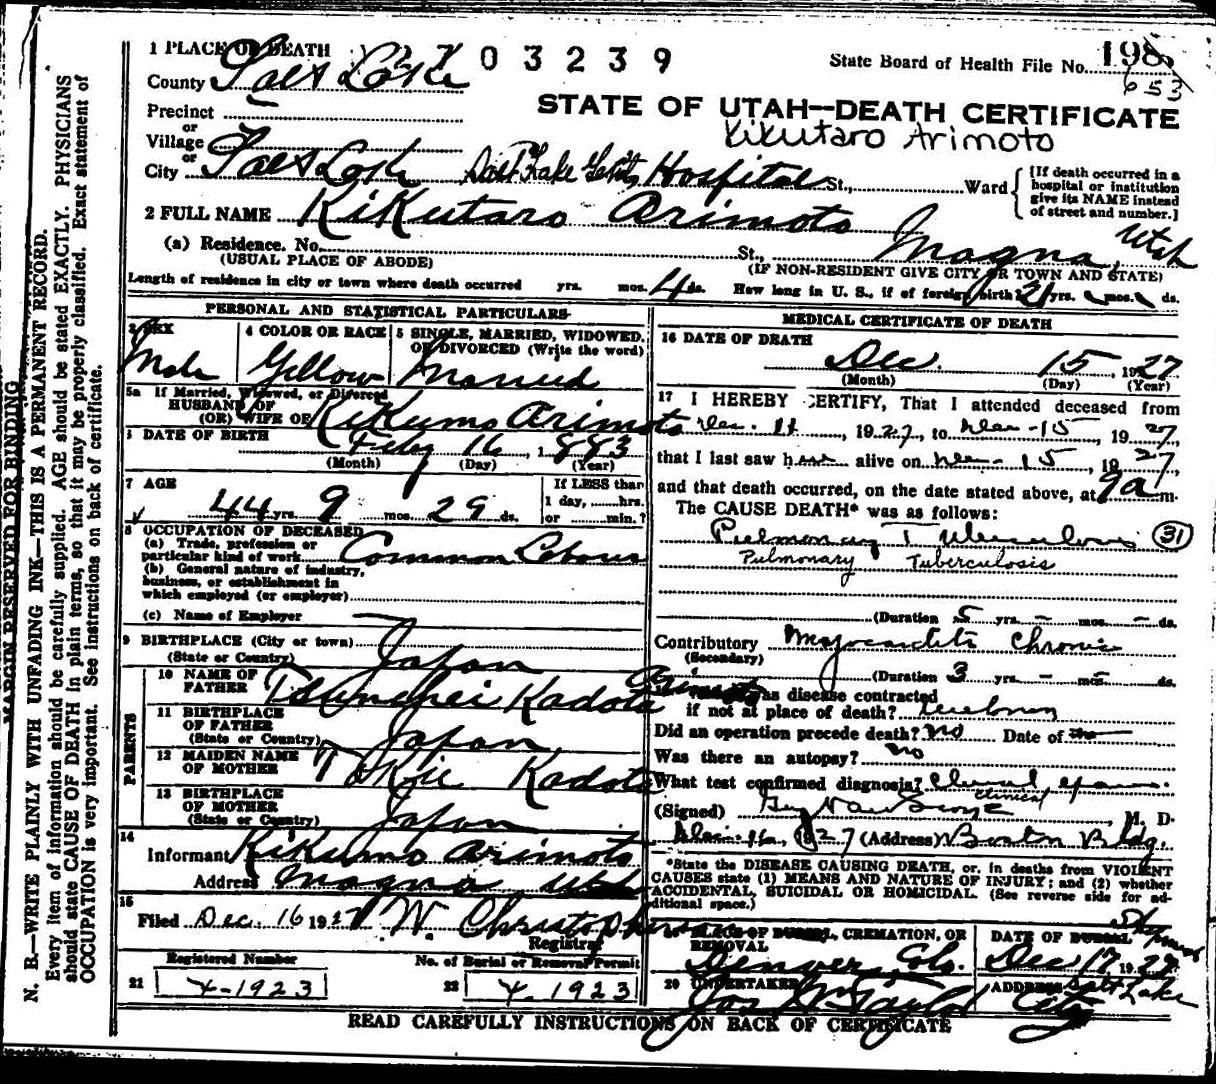 1 PLACE OF DEATH 27 03239
State Board of Health File No. 198
653
County Salt Lake
STATE OF UTAH—DEATH CERTIFICATE
Precinct
or
Kikutaro Arimoto
Village
or
City Salt Lake Salt Lake Hospital St., Ward
[If death occurred in a hospital or institution give its NAME instead of street and number.]
2 FULL NAME Kikutaro Arimoto
(a) Residence. No. St., Magna, Utah
(USUAL PLACE OF ABODE) (IF NON-RESIDENT GIVE CITY OR TOWN AND STATE)
Length of residence in city or town where death occurred yrs. mos. 4 ds. How long in U. S., if of foreign birth? 21 yrs. mos. ds.
PERSONAL AND STATISTICAL PARTICULARS
3 SEX 4 COLOR OR RACE 5 SINGLE, MARRIED, WIDOWED, OR DIVORCED (Write the word)
Male Yellow Married
5a If Married, Widowed, or Divorced
HUSBAND OF
(OR) WIFE OF Kikumo Arimoto
6 DATE OF BIRTH Feby 16, 1883
(Month) (Day) (Year)
7 AGE 44 yrs. 9 mos. 29 ds.
If LESS than 1 day, hrs. or min.?
8 OCCUPATION OF DECEASED
(a) Trade, profession or particular kind of work Common Labour
(b) General nature of industry, business, or establishment in which employed (or employer)
(c) Name of Employer
9 BIRTHPLACE (City or town)
(State or Country) Japan
PARENTS
10 NAME OF FATHER Kadota Arimoto
11 BIRTHPLACE OF FATHER (State or Country) Japan
12 MAIDEN NAME OF MOTHER Tokie Kadota
13 BIRTHPLACE OF MOTHER (State or Country) Japan
14
Informant Kikumo Arimoto
Address Magna Utah
15
Filed Dec. 16 1927 W. Christopherson
Registrar
Registered Number No. of Burial or Removal Permit
21 Y-1923 22 Y. 1923
MEDICAL CERTIFICATE OF DEATH
16 DATE OF DEATH
Dec. 15 1927
(Month) (Day) (Year)
17 I HEREBY CERTIFY, That I attended deceased from
Dec. 11, 1927, to Dec-15, 1927,
that I last saw h alive on Dec- 15, 1927,
and that death occurred, on the date stated above, at 9a m.
The CAUSE DEATH* was as follows:
Pulmonary Tuberculosis 31
Pulmonary Tuberculosis
(Duration 5 yrs. – mos. – ds.
Contributory Myocarditis Chronic
(Secondary)
(Duration 3 yrs. – mos. ds.
as disease contracted
if not at place of death?
Did an operation precede death? no Date of
Was there an autopsy? no
What test confirmed diagnosis? Clinical
clinical
(Signed) M. D.
Dec. 16, 1927 (Address) Boston Bldg.
*State the DISEASE CAUSING DEATH, or, in deaths from VIOLENT
CAUSES state (1) MEANS AND NATURE OF INJURY; and (2) whether
ACCIDENTAL, SUICIDAL OR HOMICIDAL. (See reverse side for additional space.)
OF BURIAL, CREMATION, OR REMOVAL DATE OF BURIAL
Denver, Colo. Dec 17, 1927
20 UNDERTAKER Jos Wm Taylor ADDRESS Salt Lake City
READ CAREFULLY INSTRUCTIONS ON BACK OF CERTIFICATE
MARGIN RESERVED FOR BINDING
N. B.—WRITE PLAINLY WITH UNFADING INK—THIS IS A PERMANENT RECORD.
Every item of information should be carefully supplied. AGE should be stated EXACTLY. PHYSICIANS
should state CAUSE OF DEATH in plain terms, so that it may be properly classified. Exact statement of
OCCUPATION is very important. See instructions on back of certificate.